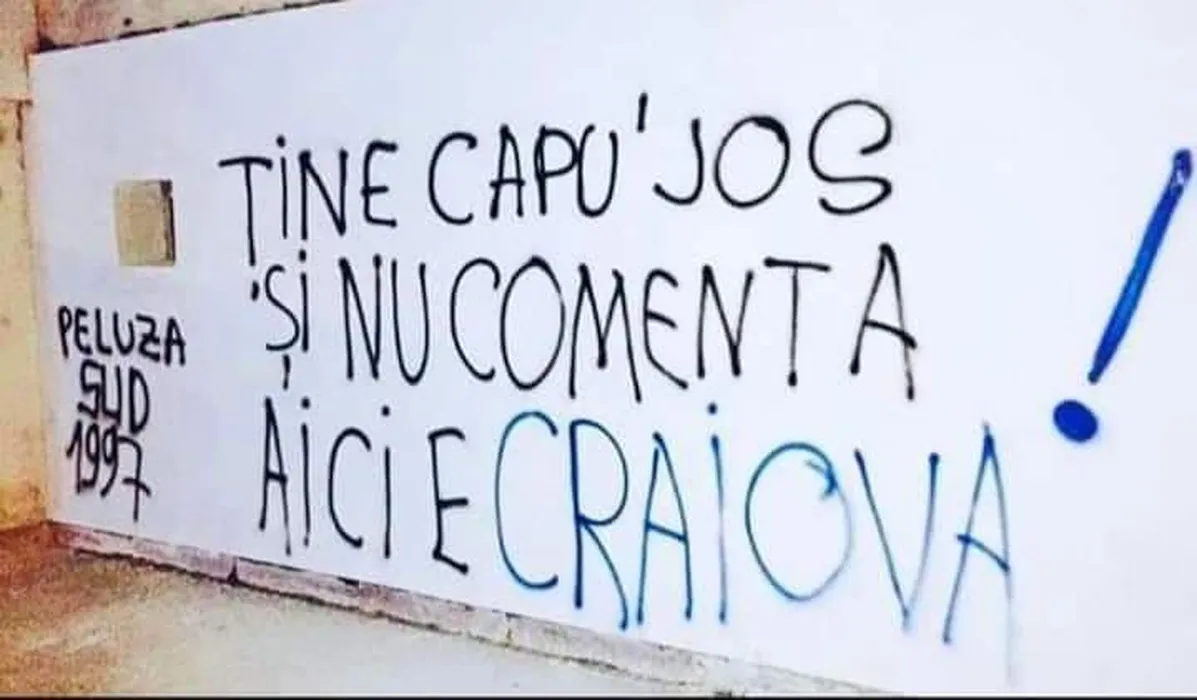 ȚiNE CAPU' JOS
ȘI NU COMENTA
AiCi E CRAiOVA!
PELUZA
SUD
1997